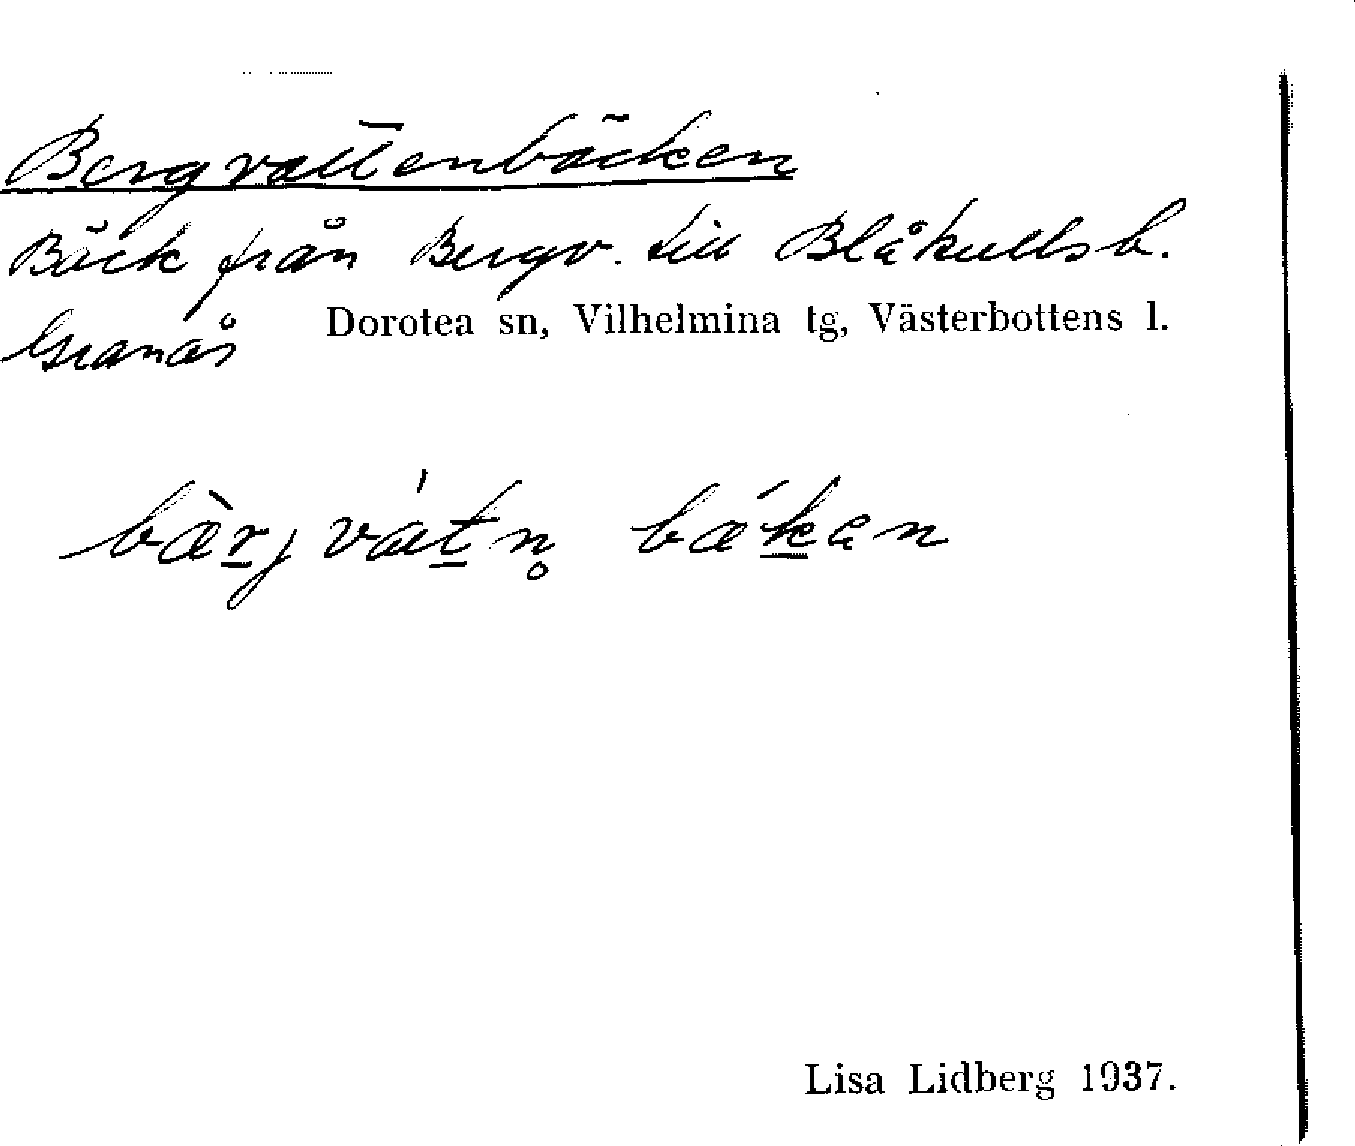 Bergvattenbäcken
Bäck från Bergv. till Blåkullsb.
Granås Dorotea sn, Vilhelmina tg, Västerbottens l.
bæ̀r̲jvát̲n̥ bǽk̲en
Lisa Lidberg 1937.